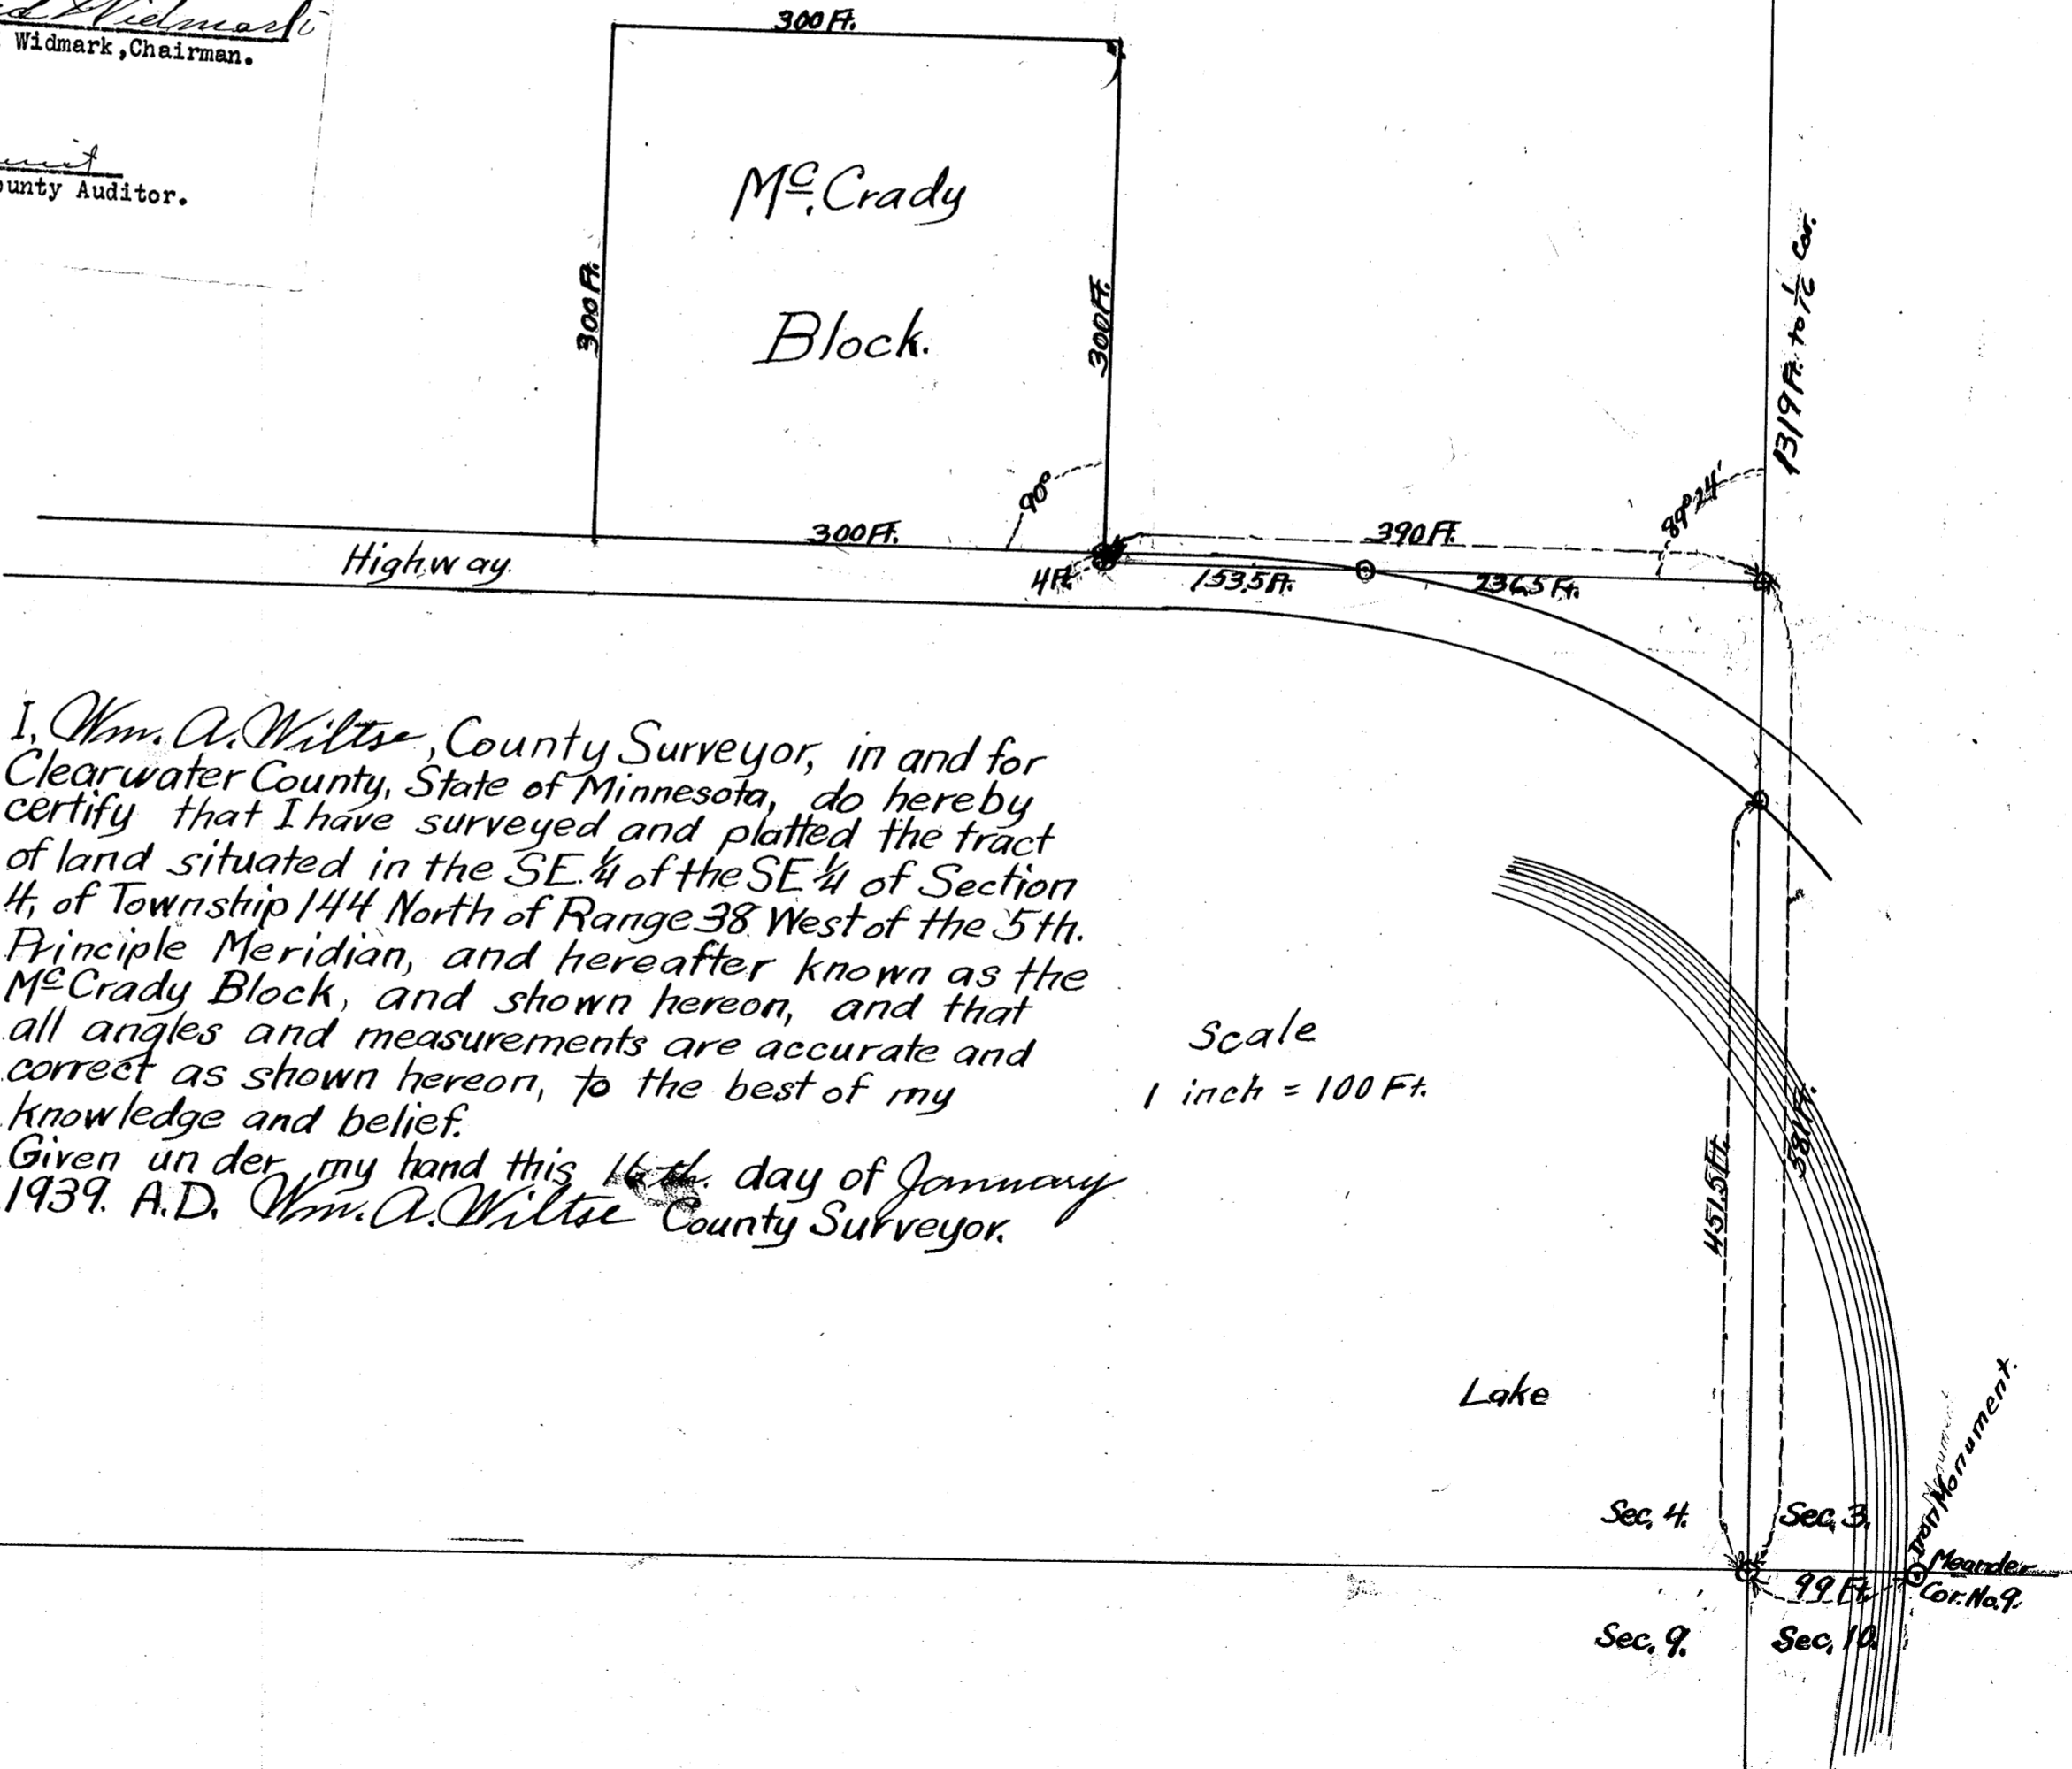 Widmark
Widmark, Chairman.
County Auditor.
300 Ft.
McCrady
Block.
300 Ft.
300 Ft.
90°
300 Ft.
Highway.
4 Ft.
390 Ft.
153.5 Ft.
236.5 Ft.
89°24'
1319 Ft. to 1/16 Cor.
I, Wm. A. Wiltse, County Surveyor, in and for
Clearwater County, State of Minnesota, do hereby
certify that I have surveyed and platted the tract
of land situated in the SE.1/4 of the SE1/4 of Section
4, of Township 144 North of Range 38 West of the 5th.
Principle Meridian, and hereafter known as the
McCrady Block, and shown hereon, and that
all angles and measurements are accurate and
correct as shown hereon, to the best of my
knowledge and belief.
Given under my hand this 16th. day of January
1939. A.D. Wm. A. Wiltse County Surveyor.
Scale
1 inch = 100 Ft.
451.5 Ft.
581 Ft.
Lake
Sec. 4.
Sec. 3.
Monument.
Meander
Cor. No. 9.
99 Ft.
Sec. 9.
Sec. 10.